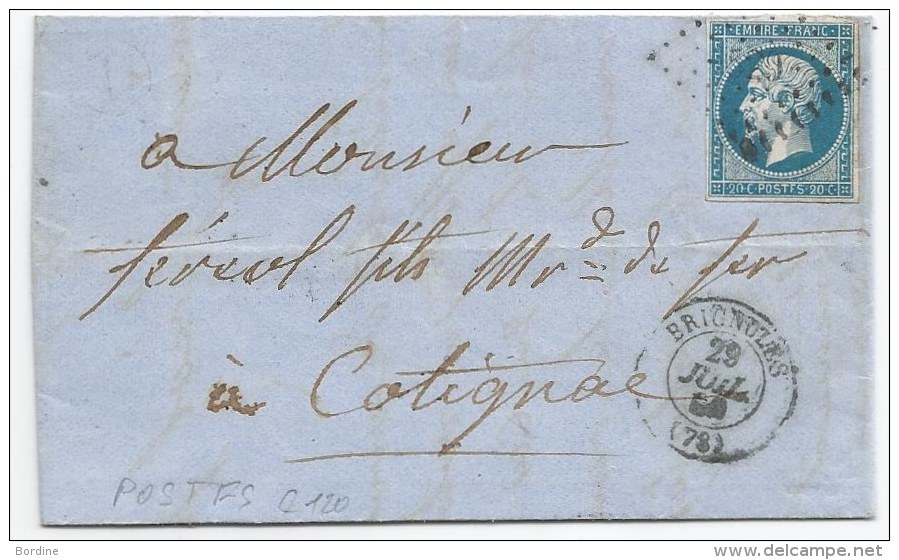 EMPIRE FRANC
20 C POSTES 20 C
a Monsieur
féraol fils Mrd de fer
à Cotignac
BRIGNOLES
29
JUIL.
(78)
POSTFS C 120
Bordine
http://www.delcampe.net